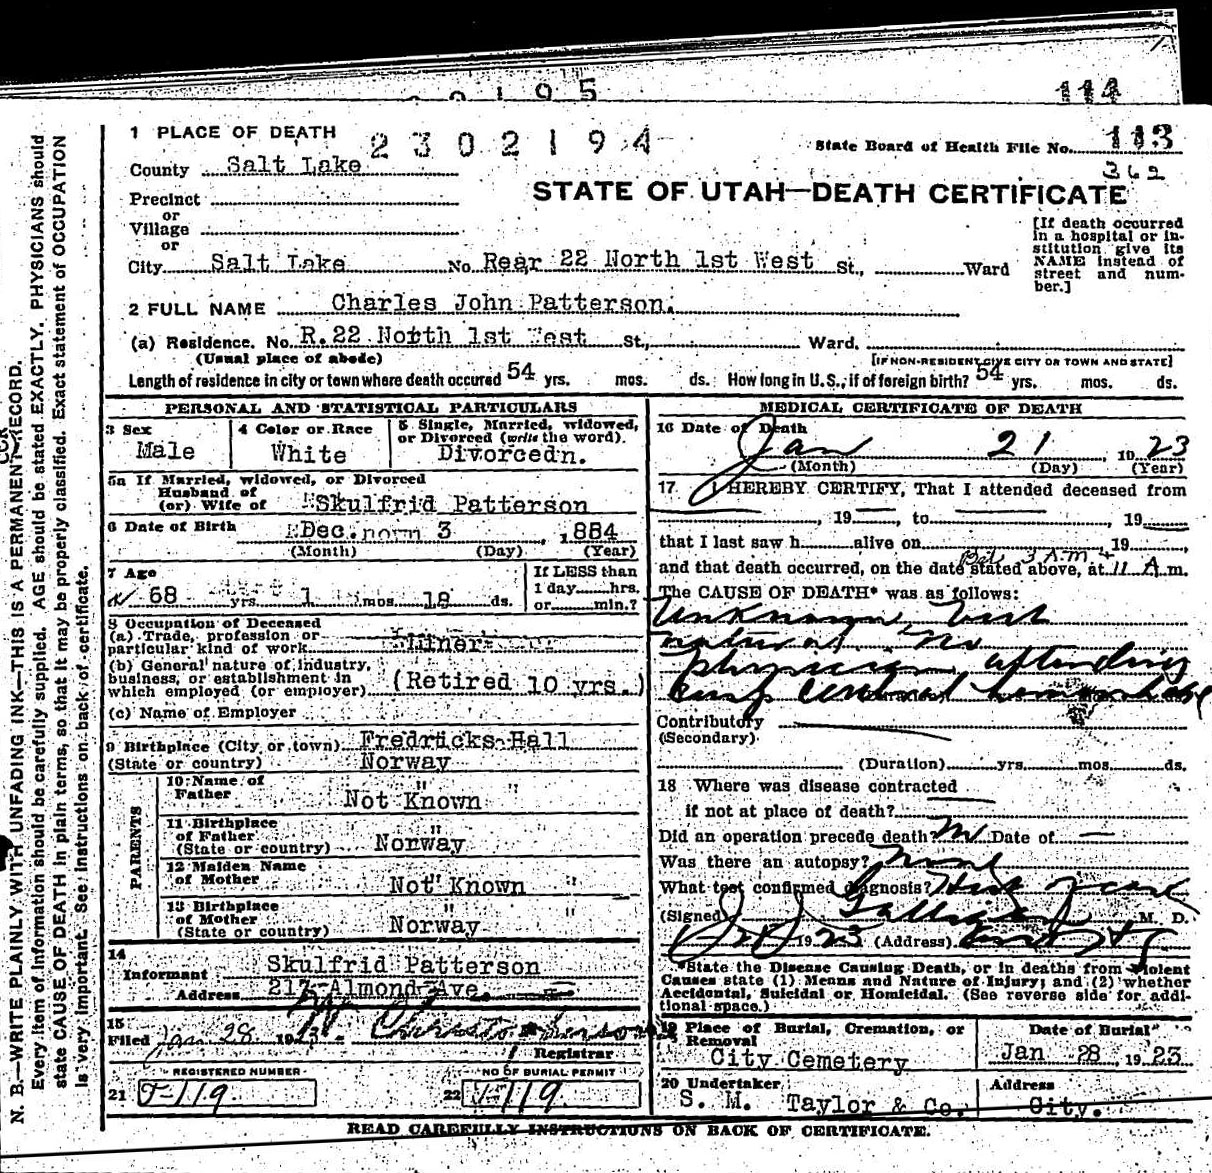 0 1 9 5
114
1 PLACE OF DEATH
2 3 0 2 1 9 4
State Board of Health File No. 113
362
County Salt Lake
STATE OF UTAH—DEATH CERTIFICATE
Precinct
or
Village
or
City Salt Lake No. Rear 22 North 1st West St., Ward
[If death occurred
in a hospital or in-
stitution give its
NAME instead of
street and num-
ber.]
2 FULL NAME Charles John Patterson.
(a) Residence. No. R.22 North 1st West St., Ward.
(Usual place of abode)
[IF NON-RESIDENT GIVE CITY OR TOWN AND STATE]
Length of residence in city or town where death occured 54 yrs. mos. ds. How long in U.S., if of foreign birth? 54 yrs. mos. ds.
PERSONAL AND STATISTICAL PARTICULARS
3 Sex
Male
4 Color or Race
White
5 Single, Married, widowed,
or Divorced (write the word).
Divorced
5a If Married, widowed, or Divorced
Husband of
(or) Wife of Skulfrid Patterson
6 Date of Birth Dec. 3, 1884
(Month) (Day) (Year)
7 Age
68 yrs. 1 mos. 18 ds.
If LESS than
1 day hrs.
or min.?
8 Occupation of Deceased
(a) Trade, profession or
particular kind of work Miner
(b) General nature of industry,
business, or establishment in
which employed (or employer) (Retired 10 yrs.)
(c) Name of Employer
9 Birthplace (City or town) Fredricks-Hall
(State or country) Norway
PARENTS
10 Name of
Father Not Known "
11 Birthplace
of Father
(State or country) Norway
12 Maiden Name
of Mother Not Known "
13 Birthplace
of Mother
(State or country) Norway
14
Informant Skulfrid Patterson
Address 217 Almond Ave.
15
Filed Jan 28 1923
Registrar
REGISTERED NUMBER
21 J-119
NO OF BURIAL PERMIT
22 J-119
MEDICAL CERTIFICATE OF DEATH
16 Date of Death
Jan 21 1923
(Month) (Day) (Year)
17 I HEREBY CERTIFY, That I attended deceased from
, 19 , to , 19
that I last saw h alive on 19 ,
Bet. 3 A.M. &
and that death occurred, on the date stated above, at 11 A.m.
The CAUSE OF DEATH* was as follows:
Unknown, but
natural. No
physician attending
cerebral hemorrhage
Contributory
(Secondary)
(Duration) yrs. mos. ds.
18 Where was disease contracted
if not at place of death?
Did an operation precede death? No Date of —
Was there an autopsy? None
What test confirmed diagnosis?
(Signed) M. D.
1923 (Address)
*State the Disease Causing Death, or in deaths from Violent
Causes state (1) Means and Nature of Injury; and (2) whether
Accidental, Suicidal or Homicidal. (See reverse side for addi-
tional space.)
19 Place of Burial, Cremation, or
Removal
City Cemetery
Date of Burial
Jan 28, 1923
20 Undertaker
S. M. Taylor & Co.
Address
City.
READ CAREFULLY INSTRUCTIONS ON BACK OF CERTIFICATE.
N. B.—WRITE PLAINLY WITH UNFADING INK—THIS IS A PERMANENT RECORD.
Every item of information should be carefully supplied. AGE should be stated EXACTLY. PHYSICIANS should
state CAUSE OF DEATH in plain terms, so that it may be properly classified. Exact statement of OCCUPATION
is very important. See instructions on back of certificate.